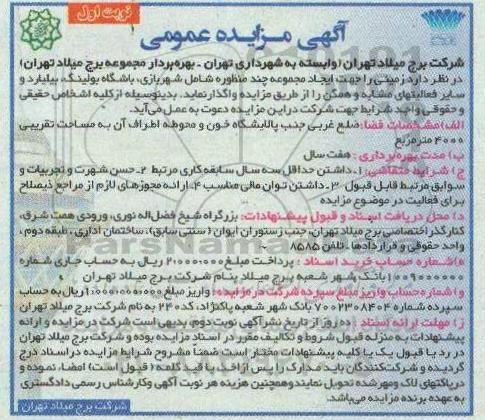 نوبت اول
آگهی مزایده عمومی
شرکت برج میلاد تهران (وابسته به شهرداری تهران - بهره‌بردار مجموعه برج میلاد تهران)
در نظر دارد زمینی را جهت ایجاد مجموعه چند منظوره شامل شهربازی، باشگاه بولینگ، بیلیارد و
سایر فعالیتهای مشابه و همگن را از طریق مزایده واگذار نماید. بدینوسیله از کلیه اشخاص حقیقی
و حقوقی واجد شرایط جهت شرکت در این مزایده دعوت به عمل می‌آید.
الف) مشخصات فضا: ضلع غربی جنب پالایشگاه خون و محوطه اطراف آن به مساحت تقریبی
۴۰۰۰ مترمربع
ب) مدت بهره‌برداری: هفت سال
ج) شرایط متقاضی: ۱. داشتن حداقل سه سال سابقه کاری مرتبط ۲. حسن شهرت و تجربیات و
سوابق مرتبط قابل قبول ۳. داشتن توان مالی مناسب ۴. ارائه مجوزهای لازم از مراجع ذیصلاح
برای فعالیت در موضوع مزایده
د) محل دریافت اسناد و قبول پیشنهادات: بزرگراه شیخ فضل‌اله نوری، ورودی همت شرق،
کنارگذر اختصاصی برج میلاد تهران، جنب رستوران ایوان (سنتی سابق)، ساختمان اداری، طبقه دوم،
واحد حقوقی و قراردادها. تلفن ۸۵۸۵
ه) شماره حساب خرید اسناد: پرداخت مبلغ ۲/۰۰۰/۰۰۰ ریال به حساب جاری شماره
بانک شهر شعبه برج میلاد بنام شرکت برج میلاد تهران
و) شماره حساب واریز مبلغ سپرده شرکت در مزایده: واریز مبلغ ۱/۰۰۰/۰۰۰/۰۰۰ ریال به حساب
سپرده شماره ۷۰۰۲۳۰۸۴۰۴ بانک شهر شعبه پاکنژاد، کد ۲۴۰ به نام شرکت برج میلاد تهران
ز) مهلت ارائه اسناد: ده روز از تاریخ نشر آگهی نوبت دوم، بدیهی است شرکت در مزایده و ارائه
پیشنهادات به منزله قبول شروط و تکالیف مقرر در اسناد مزایده بوده و شرکت برج میلاد تهران
در رد یا قبول یک یا کلیه پیشنهادات مختار است ضمنا مشروح شرایط مزایده در اسناد درج
گردیده و شرکت‌کنندگان باید مدارک را پس از اخذ با قید کلمه (قبول است) امضاء نموده و
در پاکتهای لاک و مهر شده تحویل نمایند و همچنین هزینه هر نوبت آگهی و کارشناس رسمی دادگستری
به عهده برنده مزایده می‌باشد.
شرکت برج میلاد تهران